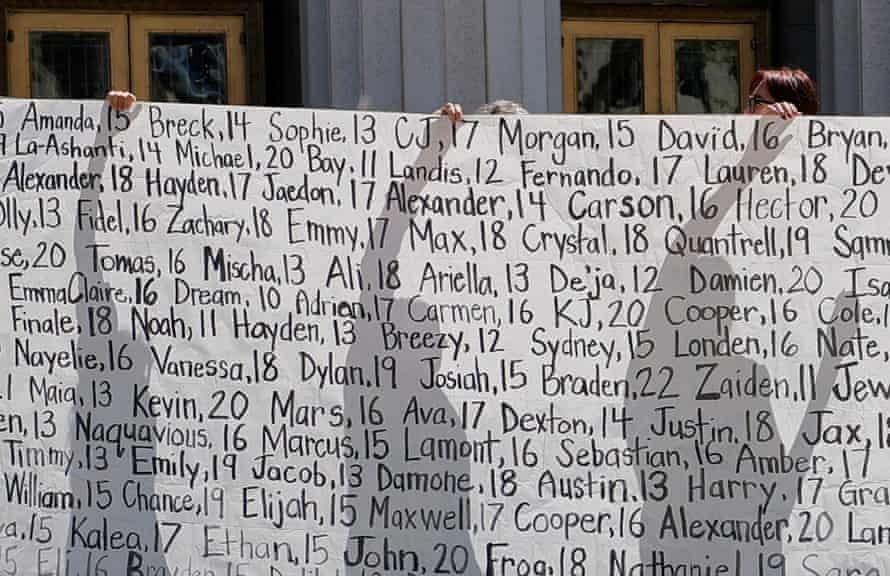 Amanda, 15 Breck, 14 Sophie, 13 CJ, 17 Morgan, 15 David, 16 Bryan,
La-Ashanti, 14 Michael, 20 Bay, 11 Landis, 12 Fernando, 17 Lauren, 18
Alexander, 18 Hayden, 17 Jaedon, 17 Alexander, 14 Carson, 16 Hector, 20
olly, 13 Fidel, 16 Zachary, 18 Emmy, 17 Max, 18 Crystal, 18 Quantrell, 19 Sam
se, 20 Tomas, 16 Mischa, 13 Ali, 18 Ariella, 13 De'ja, 12 Damien, 20 Isa
EmmaClaire, 16 Dream, 10 Adrien, 17 Carmen, 16 KJ, 20 Cooper, 16 Cole,
Finale, 18 Noah, 11 Hayden, 13 Breezy, 12 Sydney, 15 Londen, 16 Nate,
Nayelie, 16 Vanessa, 18 Dylan, 19 Josiah, 15 Braden, 22 Zaiden, 11 Jew
Maia, 13 Kevin, 20 Mars, 16 Ava, 17 Dexton, 14 Justin, 18 Jax,
en, 13 Naquavious, 16 Marcus, 15 Lamont, 16 Sebastian, 16 Amber, 17
Timmy, 13 Emily, 19 Jacob, 13 Damohe, 18 Austin, 13 Harry, 17 Gra
William, 15 Chance, 19 Elijah, 15 Maxwell, 17 Cooper, 16 Alexander, 20 Lan
a, 15 Kalea, 17 Ethan, 15 John, 20 Frog, 18 Nathaniel, 19
Eli, 16